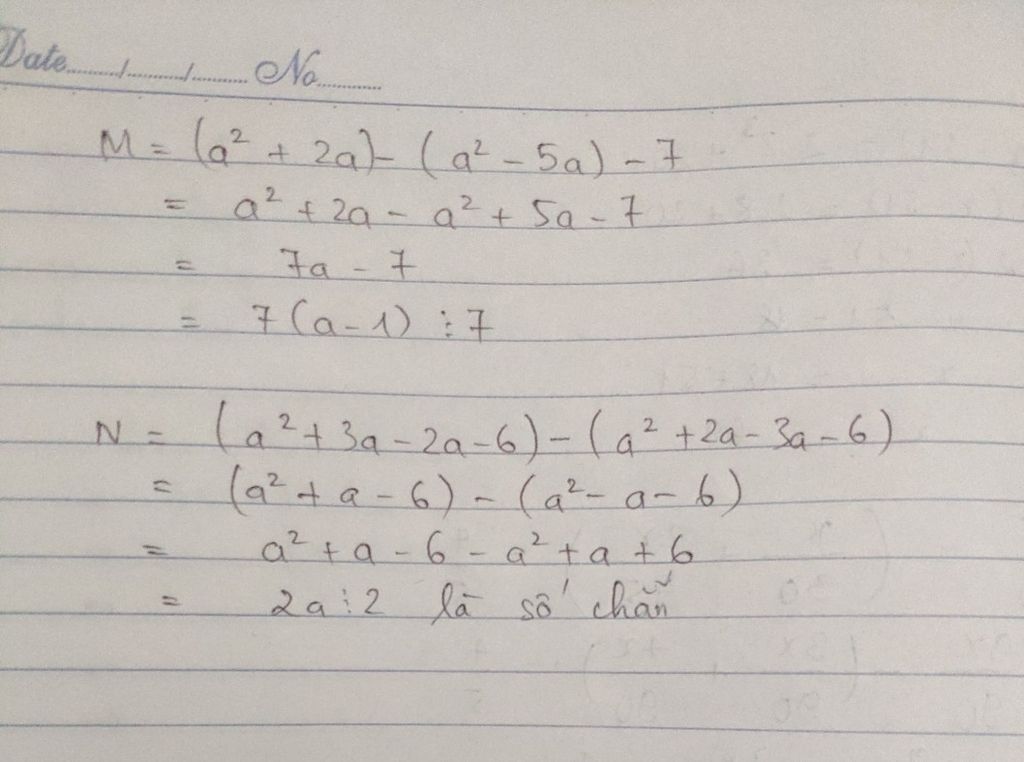 Date........../........../.......... No..........
M = (a² + 2a) - (a² - 5a) - 7
= a² + 2a - a² + 5a - 7
= 7a - 7
= 7(a - 1) ⋮ 7
N = (a² + 3a - 2a - 6) - (a² + 2a - 3a - 6)
= (a² + a - 6) - (a² - a - 6)
= a² + a - 6 - a² + a + 6
= 2a ⋮ 2 là số chẵn